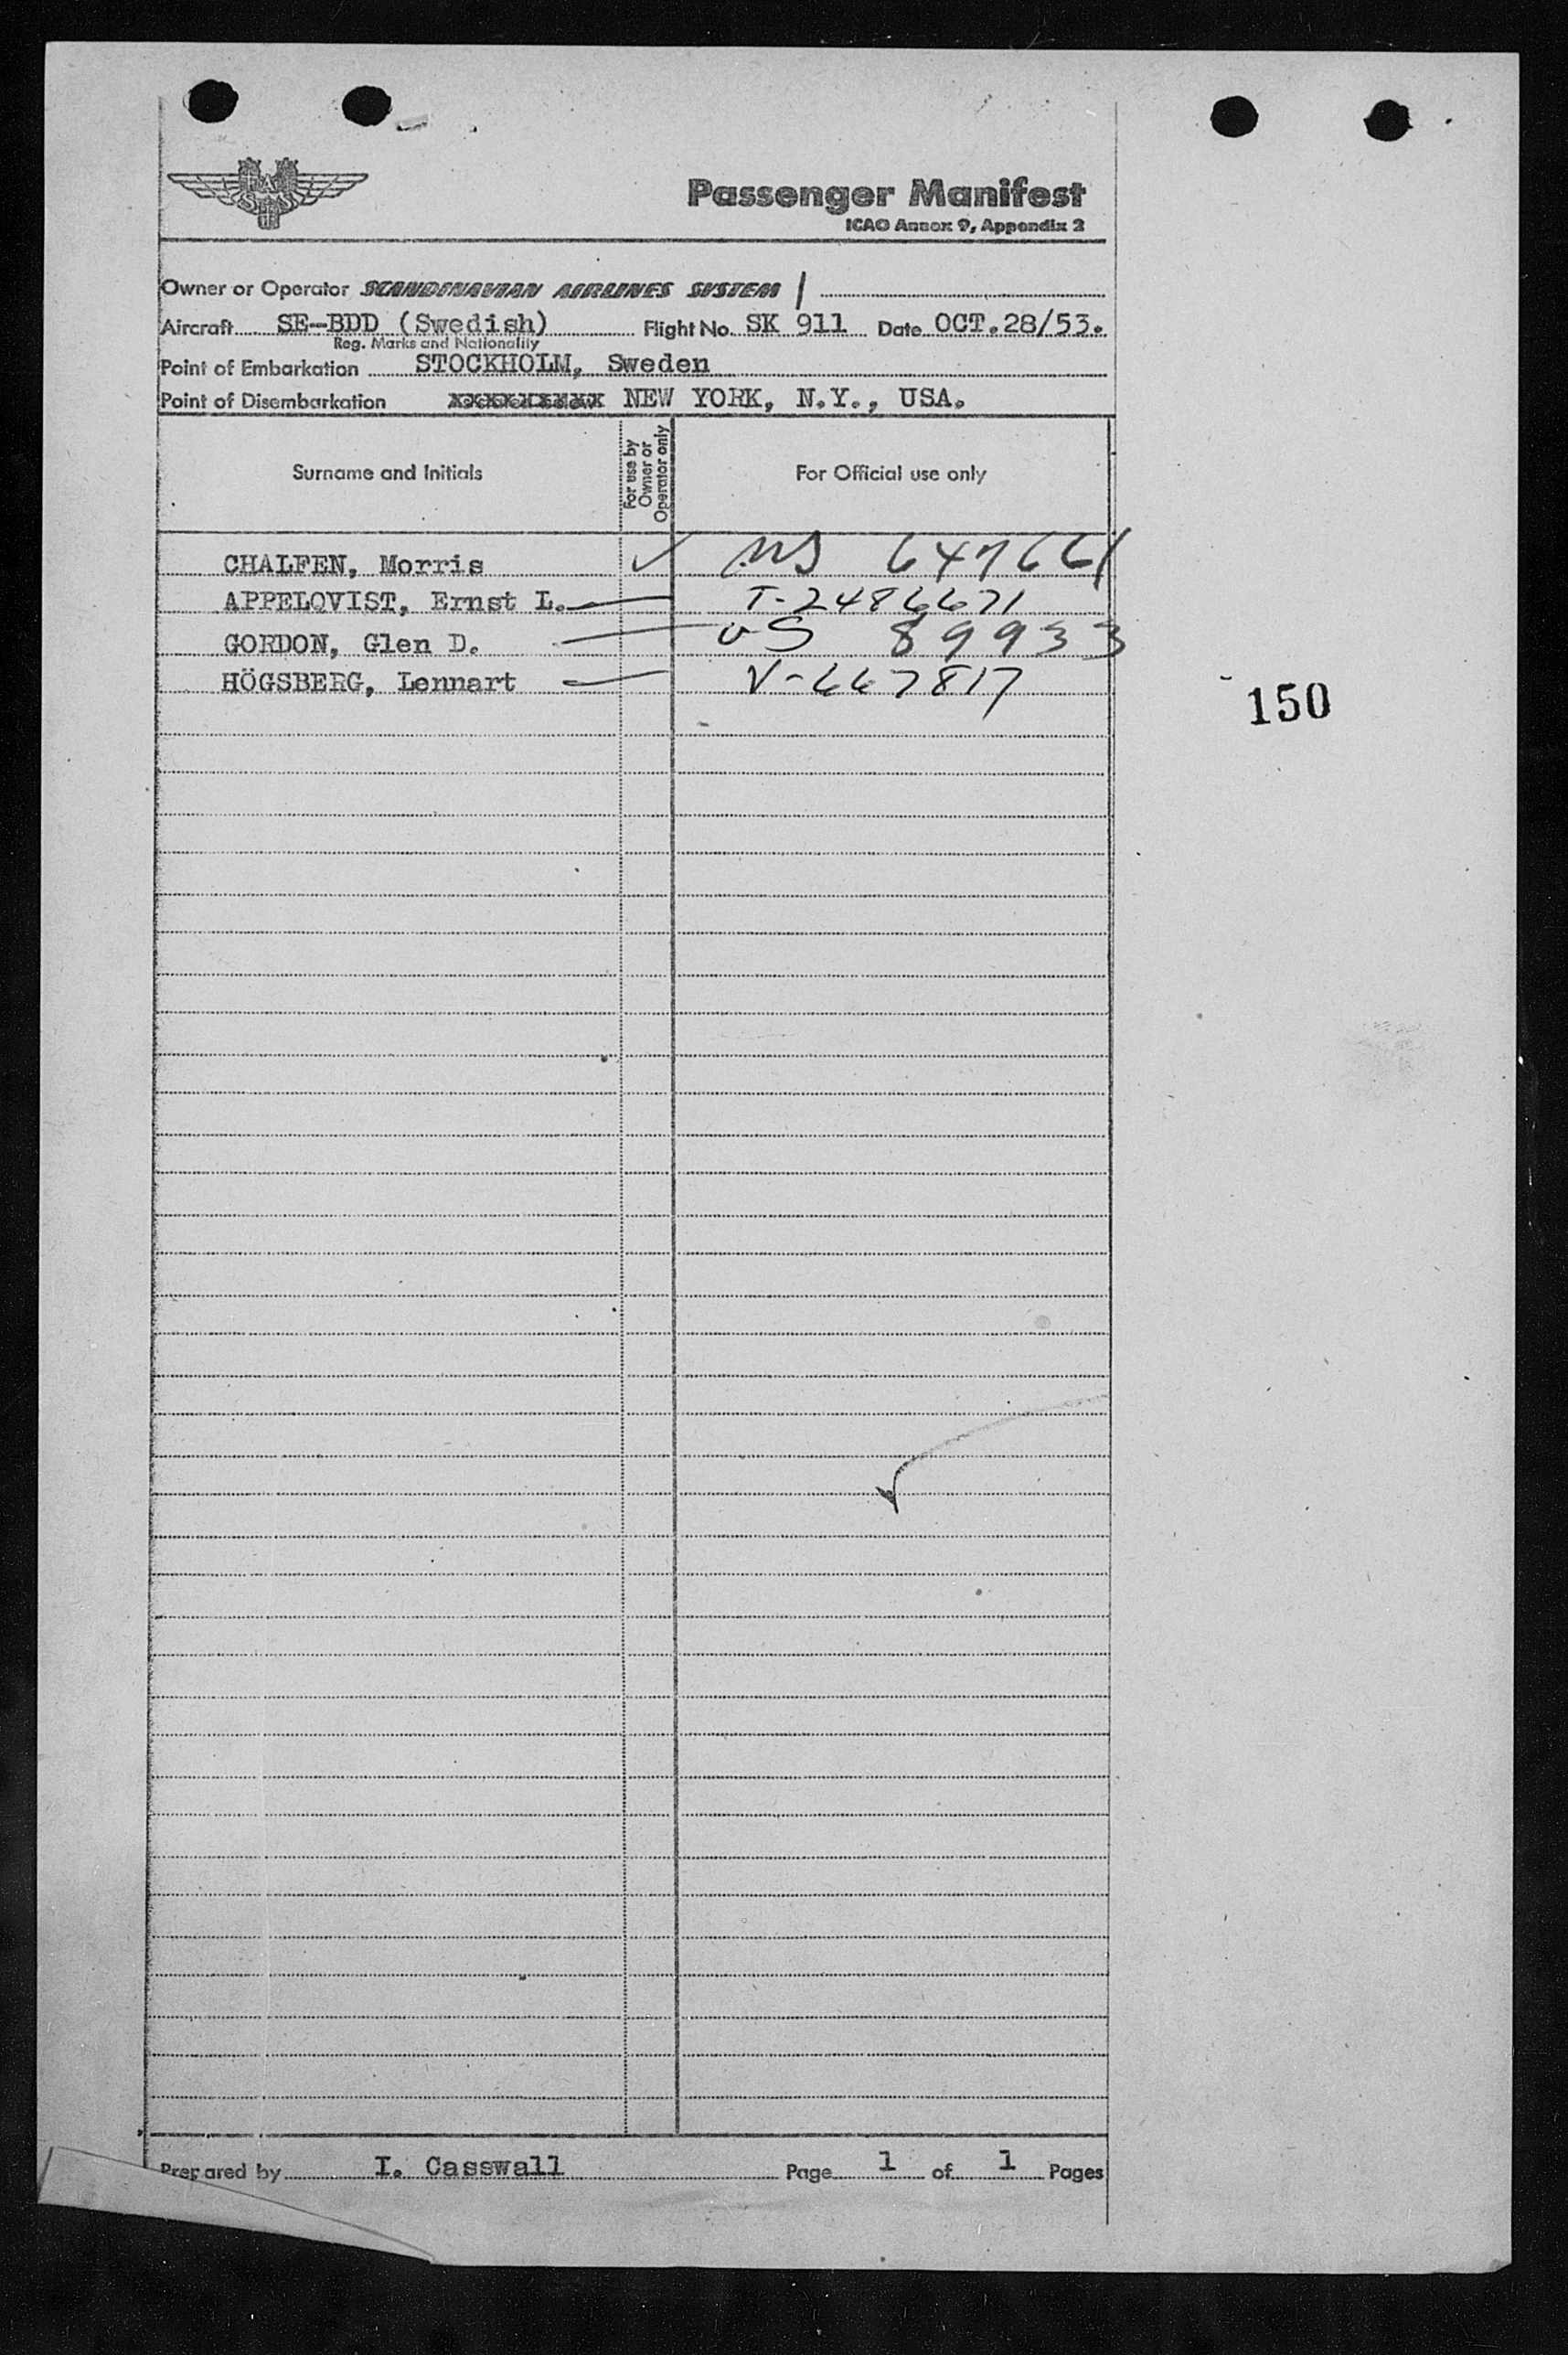 SAS
Passenger Manifest
ICAO Annex 9, Appendix 2
Owner or Operator SCANDINAVIAN AIRLINES SYSTEM
Aircraft SE-BDD (Swedish) Flight No. SK 911 Date OCT.28/53.
Reg. Marks and Nationality
Point of Embarkation STOCKHOLM, Sweden
Point of Disembarkation xxxxxxxxxx NEW YORK, N.Y., USA.
Surname and Initials For use by Owner or Operator only For Official use only
CHALFEN, Morris 647661
APPELQVIST, Ernst L. T-2486671
GORDON, Glen D. US 89933
HÖGSBERG, Lennart V-667817
150
Prepared by I. Casswall Page 1 of 1 Pages